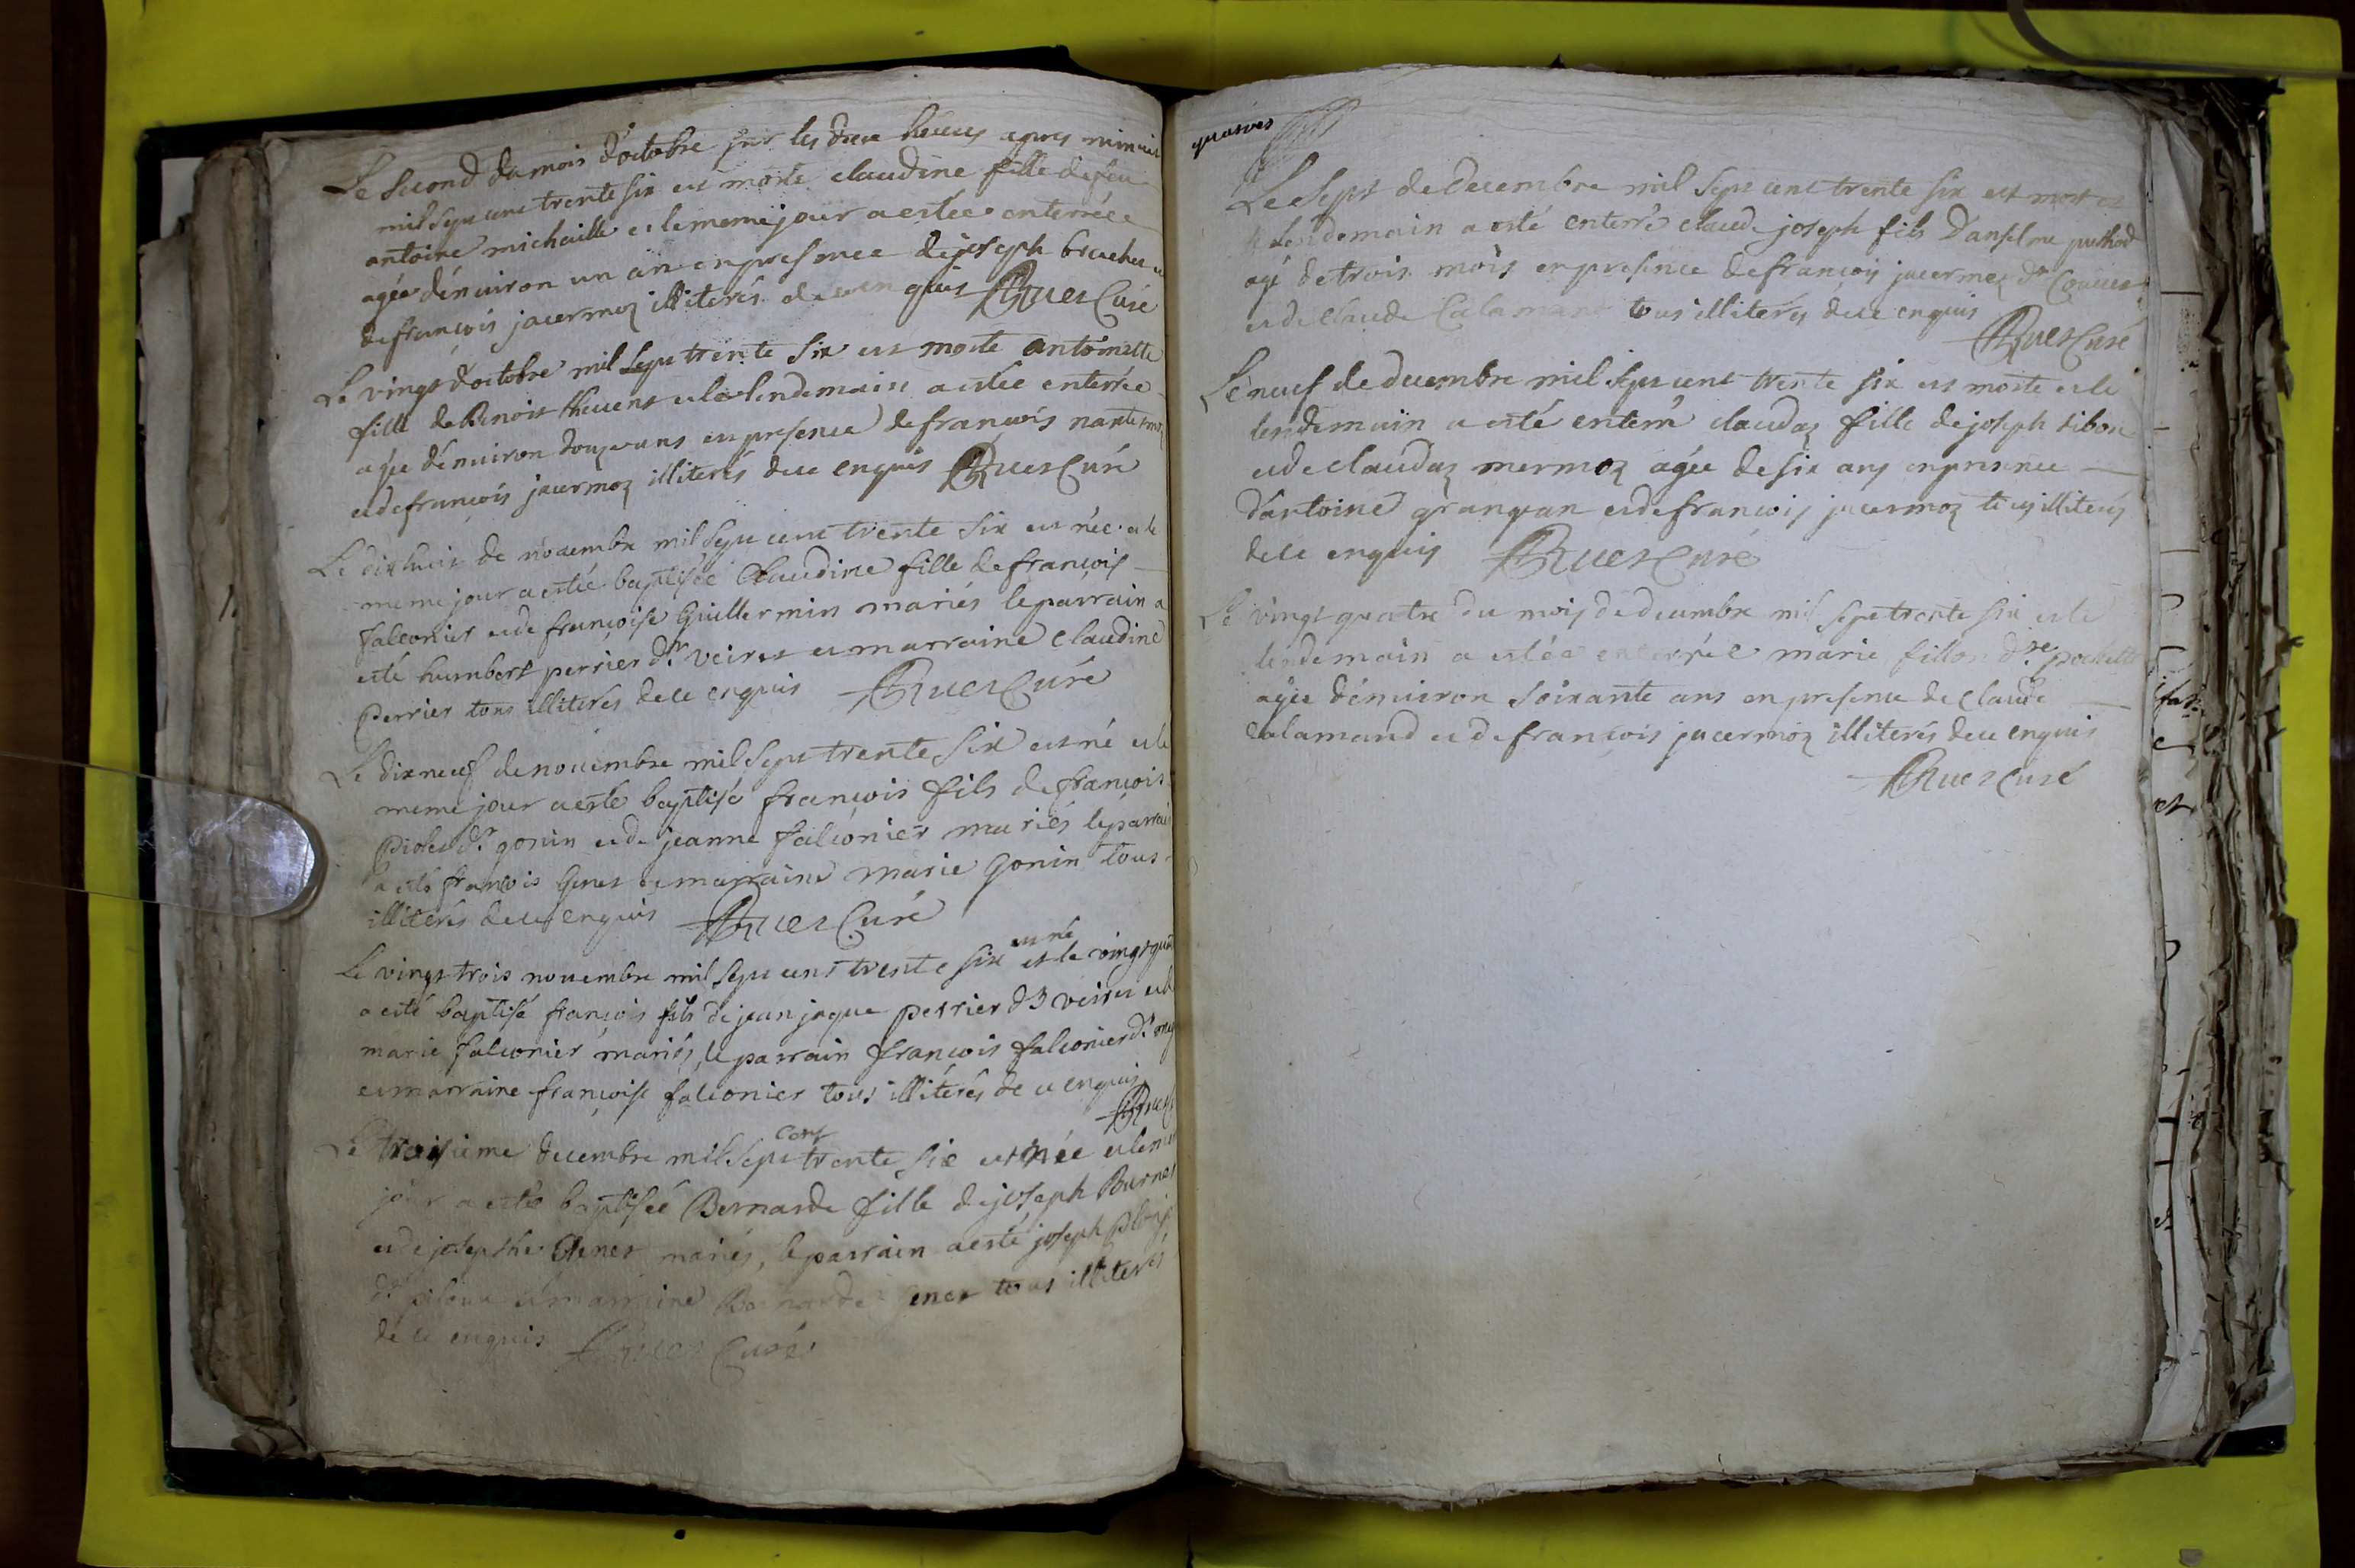 Le second du mois d'octobre sur les deux heures apres minuit
mil sept cent trente six est morte claudine fille de feu
antoine michaille et le meme jour a estée enterrée
agée d'enuiron un an en presence de joseph
de françois jacermoz illiterés de ce enquis Ruet Curé
Le vingt d'octobre mil sept trente six est morte antoinette
fille de Benoit theuent et le lendemain a estée enterrée
agée d'enuiron douze ans en presence de françois nantermoz
et de françois jacermoz illiterés de ce enquis Ruet Curé
Le dix huit de nouembre mil sept cent trente six est née et le
meme jour a estée baptisée Claudine fille de françois
falconier et de françoise Guillermin mariés le parrain a
esté humbert perrier dt veiret et marraine claudine
perrier tous illiterés de ce enquis Ruet Curé
Le dix neuf de nouembre mil sept trente six est né et le
meme jour a esté baptisé françois fils de françois
dt gonin et de jeanne falconier mariés le parrain
a esté françois Genet et marraine marie gonin tous
illiterés de ce enquis Ruet Curé
est né
Le vingt trois nouembre mil sept cent trente six et le vingt quat
a esté baptisé françois fils de jean jaque perrier dt veiret et de
marie falconier mariés, le parrain françois falconier dt
et marraine françoise falconier tous illiterés de ce enquis
Ruet C
cent
Le troisieme decembre mil sept trente six est née et le me
jour a esté baptisée Bernarde fille de joseph Burnet
et de josephe Genet mariés, le parrain a esté joseph
dt et marraine Bernarde Genet tous illiterés
de ce enquis Ruet Curé
Le sept de decembre mil sept cent trente six est mort et
le lendemain a esté enterré claude joseph fils d'anselme puthod
agé de trois mois en presence de françois jacermoz dt
et de claude Calamand tous illiterés de ce enquis
Ruet Curé
Le neuf de decembre mil sept cent trente six est morte et le
lendemain a esté enterré claudaz fille de joseph
et de claudaz mermoz agée de six ans en presence
d'antoine et de françois jacermoz tous illiterés
de ce enquis Ruet Curé
Le vingt quatre du mois de decembre mil sept trente six et le
lendemain a estée enterrée marie fillon dte
agée d'enuiron soixante ans en presence de claude
calamand et de françois jacermoz illiterés de ce enquis
Ruet Curé
et